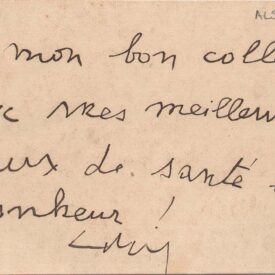 ALS
mon bon coll
mes meilleu
ux de santé
onheur !